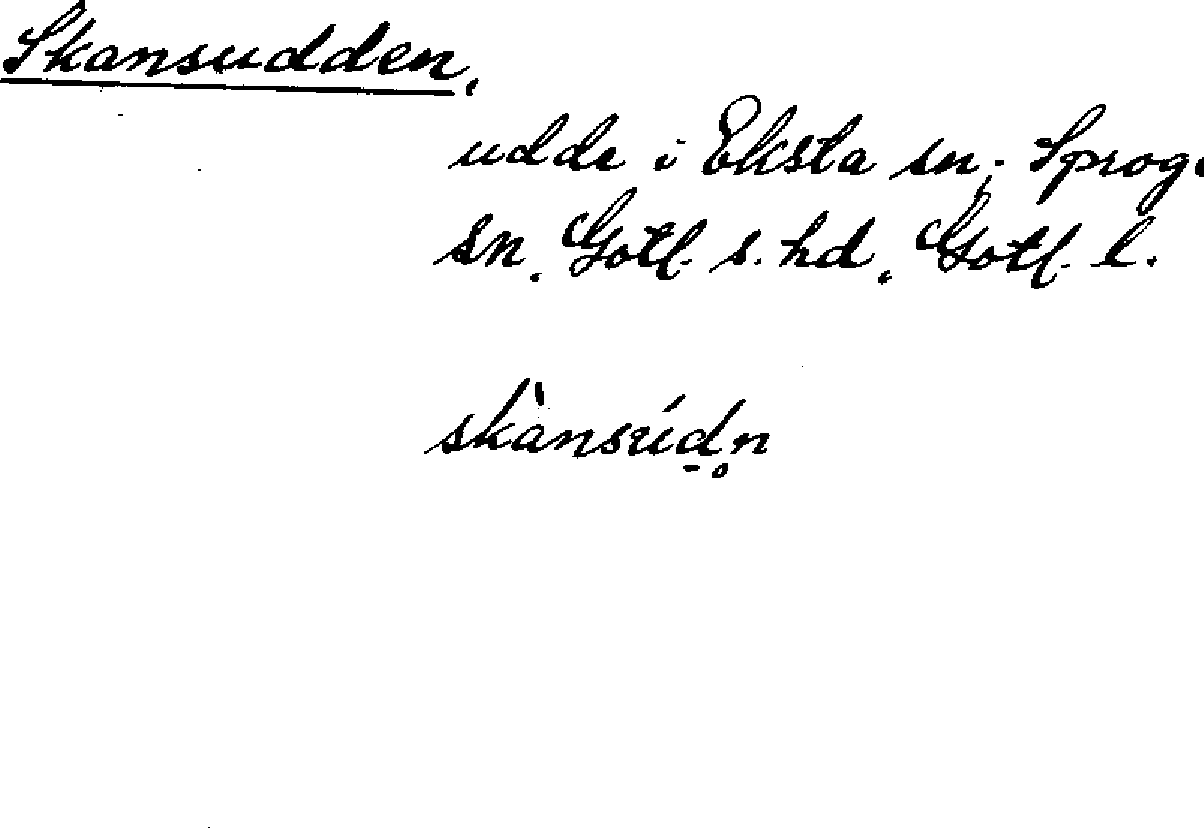 Skansudden,
udde i Eksta sn; Sproge
sn, Gotl. s. hd, Gotl. l.
skànsúd̠n̥